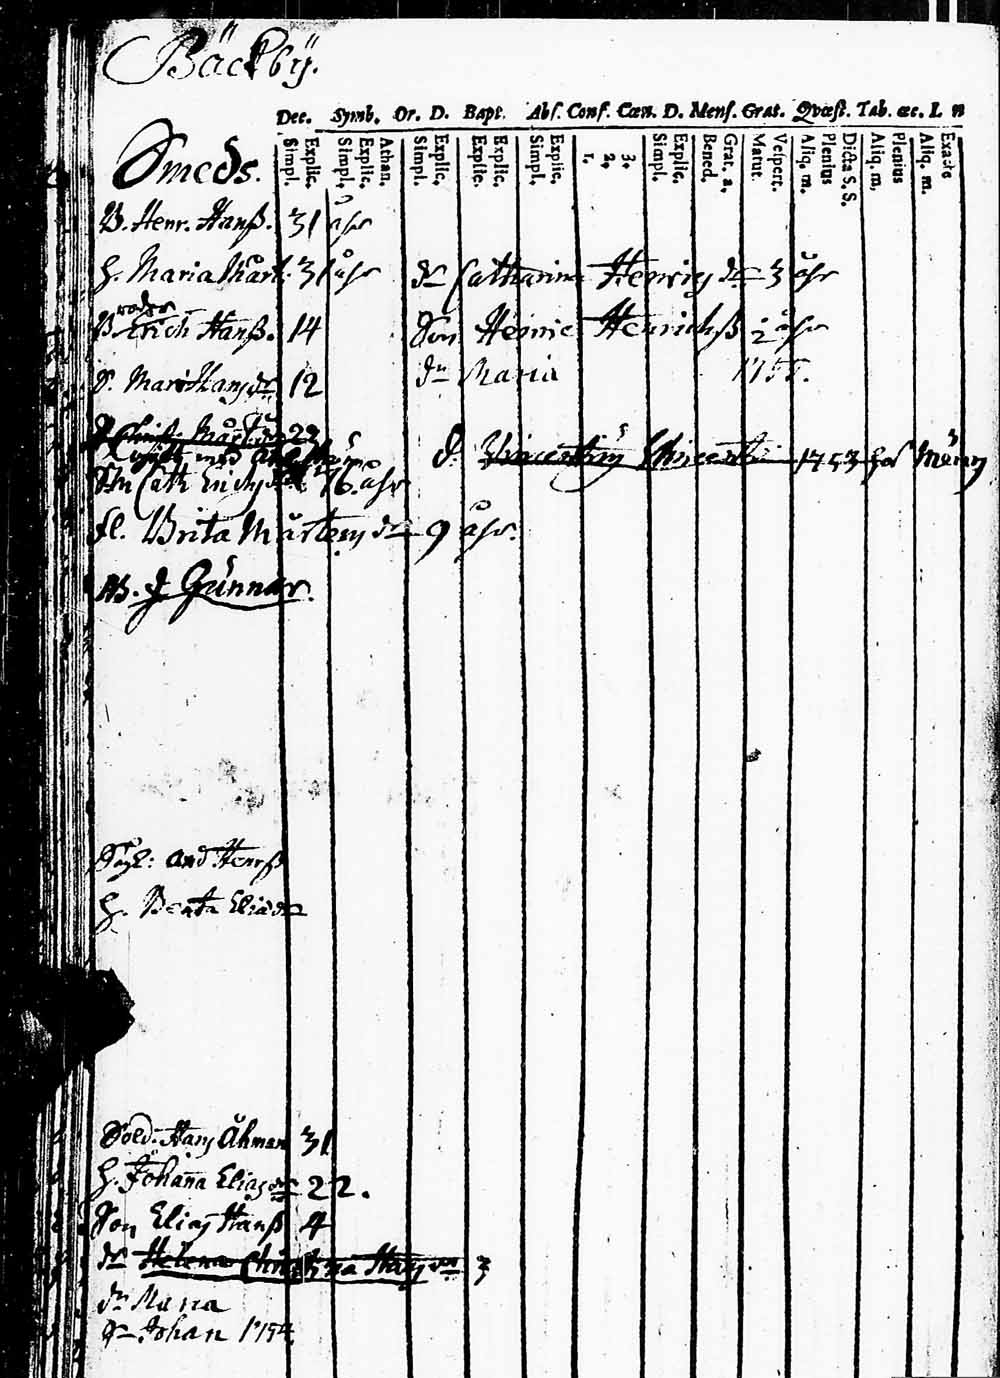 Bäckbÿ.
Dec. Symb. Or. D. Bapt. Abs. Conf. Cœn. D. Mens. Grat. Quæst. Tab. œc. L n
Simpl. Explic. Simpl. Explic. Athan. Simpl. Explic. Explic. Explic. Simpl. Explic. 1. 2. 3. Simpl. Explic. Bened. Grat. a. Matut. Vespert. Aliq. m. Plenius Dicta S. S. Aliq. m. Plenius Aliq. m. Exacte
Smeds.
B. Henr. Hanß. 31 åhr
H. Maria Mårt. 31 åhr dr Catharina Henrics dr 3 åhr
Broder Erich Hanß. 14 Son Henric Henrichß 2 åhr
S. Mari Hans dr 12 dr Maria 1755.
Christ. Mårt 22
D. Vincentius Vincenti 1753 hos
Cath Erichs 16. åhr
fl. Brita Mårtens dr 9 åhr.
Gunnar.
And Henrß
H. Beata Elias dr
Sold. Hans Åhman 31
H. Johana Elias dr 22.
Son Elias Hanß 4
dr Helena Christina Hans dr 3
dr Maria
Johan 1754.